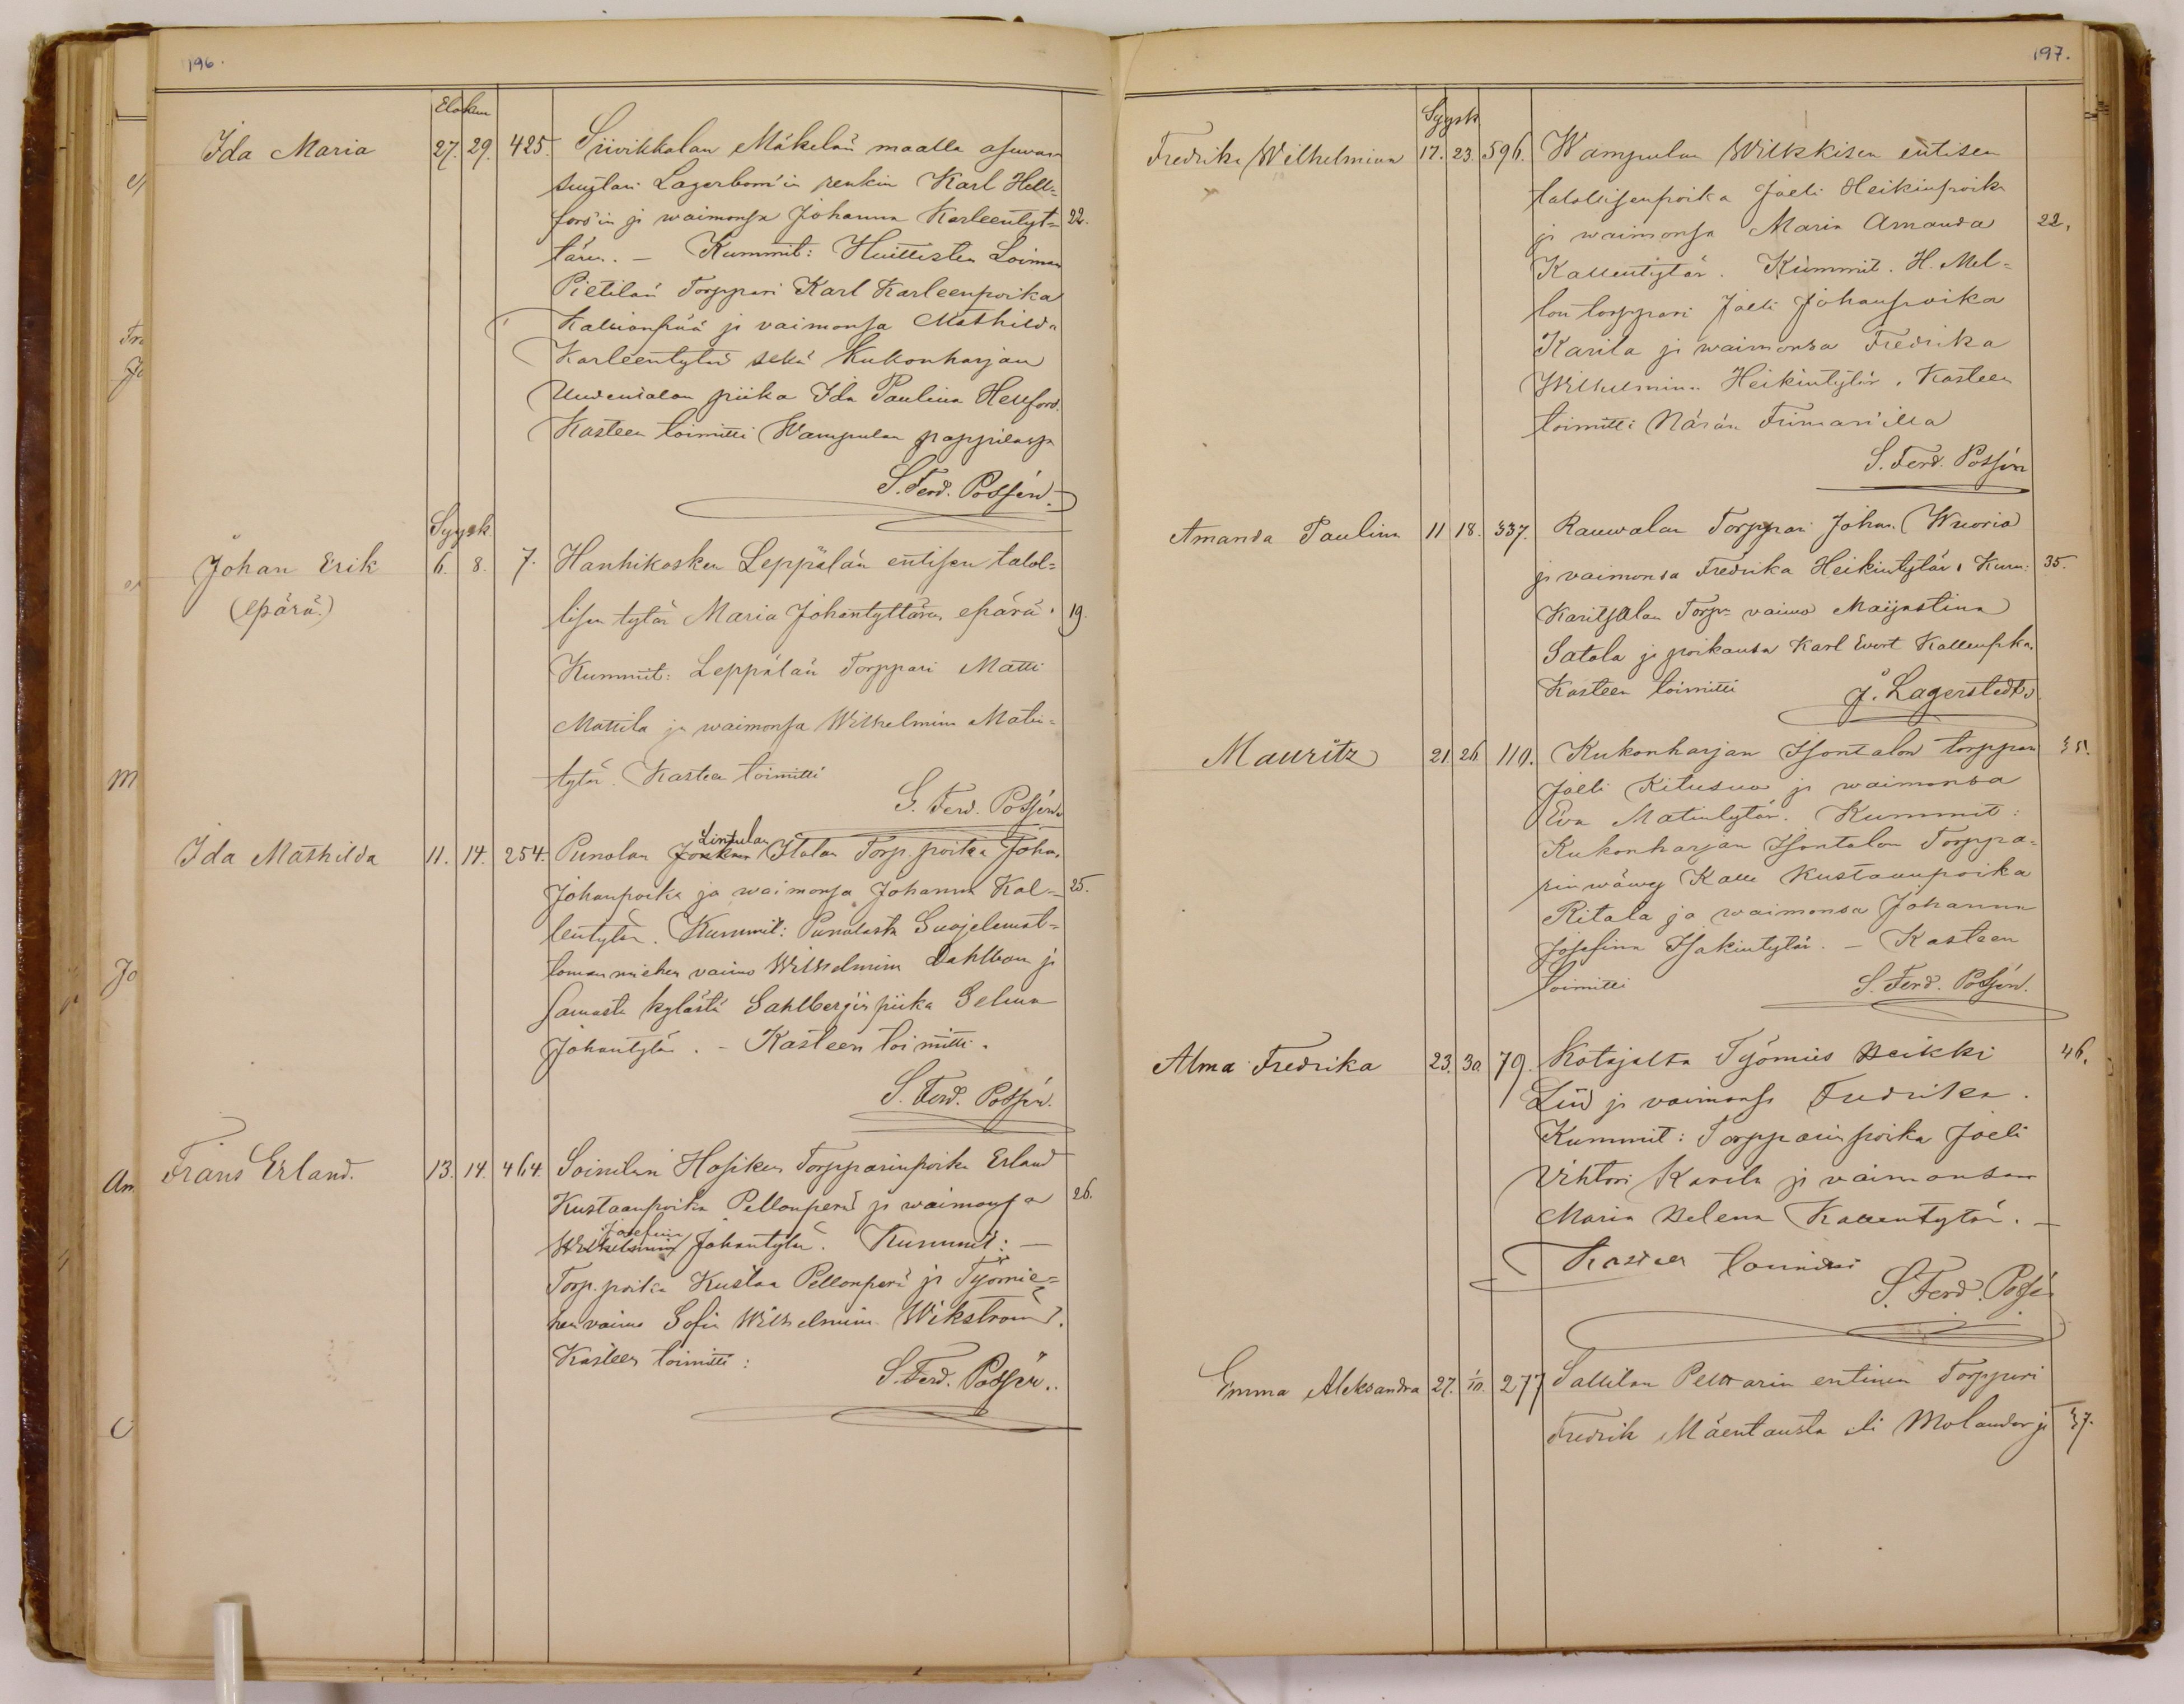 196.
Elokuu
Ida Maria 27. 29. 425. Siivikkalan Mäkelän maalla asuvan
suutari Lagerbom'in renkin Karl Hell-
fors'in ja waimonsa Johanna Karleentyt- 22.
tären. — Kummit: Huittisten Loiman
Pietilän Torppari Karl Karleenpoika
Kallionpää ja vaimonsa Mathilda
Karleentytär sekä Kukonharjan
Uudentalon piika Ida Paulina Hellfors.
Kasteen toimitti Wampulan pappilassa
S. Ferd. Possén.
Syysk.
Johan Erik 6. 8. 7. Hanhikosken Leppälän entisen talol-
(epärä.) lisen tytär Maria Johantyttären epärä. 19.
Kummit: Leppälän Torppari Matti
Mattila ja waimonsa Wilhelmina Matin-
tytär. Kasteen toimitti
S. Ferd. Possén.
Lintulan
Ida Mathilda 11. 14. 254. Punolan Italan Torp. poika Johan
Johanpoika ja waimonsa Johanna Kal- 25.
lentytär. Kummit: Punolasta Suojelemat-
toman miehen vaimo Wilhelmina Dahlbom ja
samasta kylästä Sahlbergin piika Selma
Johantytär. — Kasteen toimitti.
S. Ferd. Possén.
Frans Erland. 13. 14. 464. Soinilan Hosiken Torpparinpoika Erland
Kustaanpoika Pellonperä ja waimonsa 26.
Josefina
Wilhelmina Johantytär. Kummit: —
Torp. poika Kustaa Pellonperä ja Työmie-
hen vaimo Sofia Wilhelmina Wikström.
Kasteen toimitti:
S. Ferd. Possén.
197.
Syysk
Fredrika Wilhelmina 17. 23. 596. Wampulan Wilkkisen entisen
talollisenpoika Joeli Heikinpoika
ja waimonsa Maria Amanda 22.
Kallentytär. Kummit. H. Mel-
lon torppari Joeli Johanpoika
Karila ja waimonsa Fredrika
Wilhelmina Heikintytär. Kasteen
toimitti Närän Trimari'illa
S. Ferd. Possén
Amanda Paulina 11 18. 337. Rauwolan Torppari Johan Wuorio
ja vaimonsa Fredrika Heikintytär. Kum: 35.
Karitsalan Torp: vaimo Maijastina
Satola ja poikansa Karl Evert Kallenpka.
Kasteen toimitti J. Lagerstedt.
Mauritz 21 26 110. Kukonharjan Isontalon torppari 35.
Joeli Kitusuo ja waimonsa
Eva Matintytär. Kummit:
Kukonharjan Isontalon Torppa-
rin wäwy Kalle Kustaanpoika
Ritala ja waimonsa Johanna
Josefina Isakintytär. — Kasteen
toimitti S. Ferd. Possén.
Alma Fredrika 23. 30. 79. Kotajalta Työmies Heikki 46.
Lind ja vaimonsa Fredrika.
Kummit: Torpparin poika Joeli
Vihtori Karila ja vaimonsa
Maria Helena Kallentytär. —
Kasteen toimitti
S. Ferd. Possén
Emma Aleksandra 27. 1/10. 277 Sallilan Pelttarin entinen Torppari
Fredrik Mäentausta eli Molander ja 37.